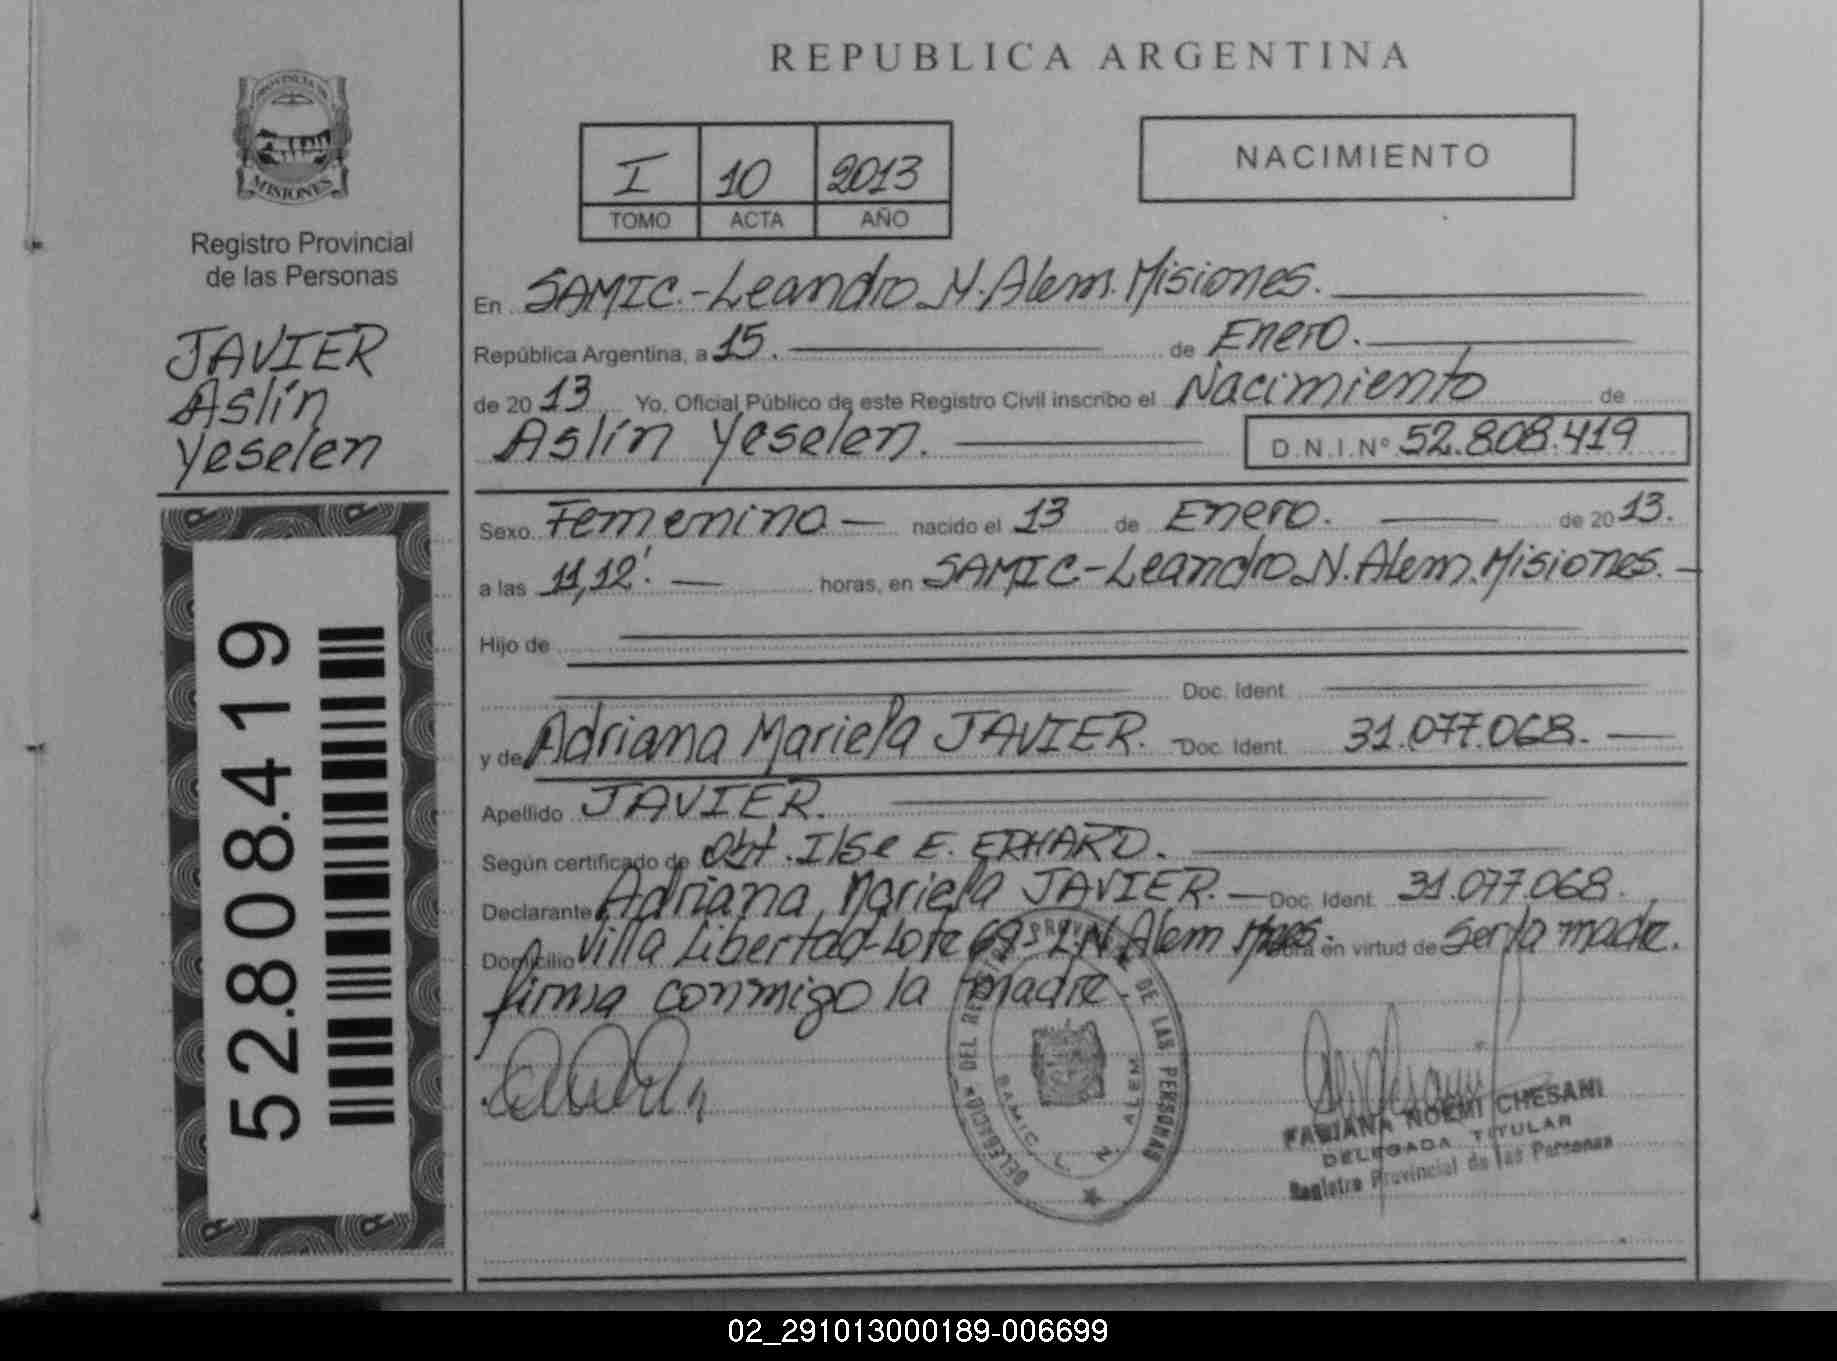 REPUBLICA ARGENTINA
PROVINCIA DE
MISIONES
Registro Provincial
de las Personas
JAVIER
Aslín
Yeselen
52.808.419
I 10 2013
TOMO ACTA AÑO
NACIMIENTO
En SAMIC.-Leandro N. Alem. Misiones.
República Argentina, a 15. de Enero.
de 2013 Yo, Oficial Público de este Registro Civil inscribo el Nacimiento de
Aslín Yeselen. D.N.I.Nº 52.808.419
Sexo Femenino nacido el 13 de Enero. de 2013.
a las 11,12'. horas, en SAMIC-Leandro N. Alem. Misiones.
Hijo de
Doc. Ident.
y de Adriana Mariela JAVIER. Doc. Ident. 31.077.068.
Apellido JAVIER.
Según certificado de Obt. Ilse E. ERHARD.
Declarante Adriana Mariela JAVIER. Doc. Ident. 31.077.068.
Domicilio Villa Libertad-Lote 69. L.N. Alem Mnes. Obra en virtud de Ser la madre.
firma conmigo la madre.
DELEGACION DEL REGISTRO PROVINCIAL DE LAS PERSONAS
SAMIC L. N. ALEM
FABIANA NOEMI CHESANI
DELEGADA TITULAR
Registro Provincial de las Personas
02_291013000189-006699